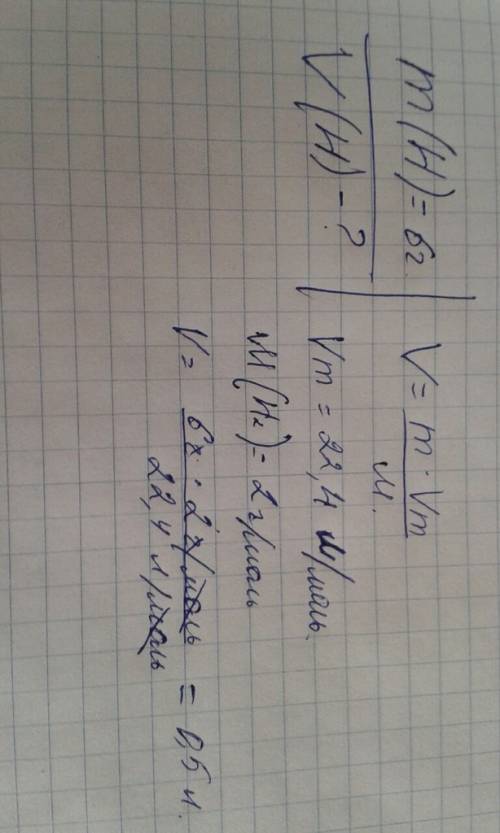 m(H) = 6г.
V(H) - ?
V = m · Vm
M.
Vm = 22,4 л/моль.
M(H₂) = 2 г/моль
V = 6г · 2 г/моль
22,4 л/моль
= 0,5 л.